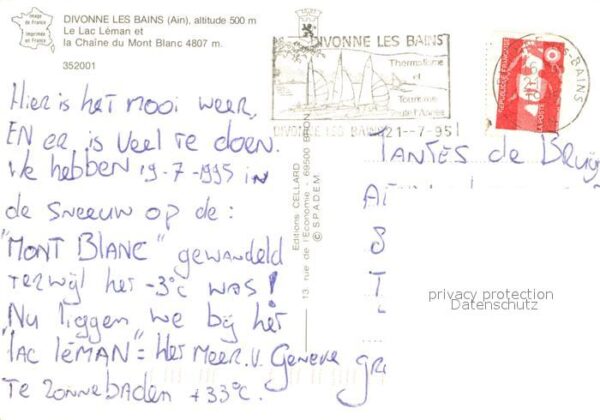 Image
de France
Imprimée
en France
DIVONNE LES BAINS (Ain), altitude 500 m
Le Lac Léman et
la Chaîne du Mont Blanc 4807 m.
352001
Hier is het mooi weer,
EN er is veel te doen.
We hebben 19-7-1995 in
de sneeuw op de:
"MONT BLANC" gewandeld
terwijl het -3°C was!
Nu liggen we bij het
"lac léman" = Het Meer. v. Geneve
te zonnebaden +33°C.
gr
Editions CELLARD
13, rue de l'Economie - 69500 BRON
© S.P.A.D.E.M.
DIVONNE LES BAINS
Thermalisme
et
Tourisme
toute l'Année
DIVONNE LES BAINS 21-7-95
BAINS
REPUBLIQUE FRANÇAISE
LA POSTE
TANTES de Bruij
A
S
T
privacy protection
Datenschutz